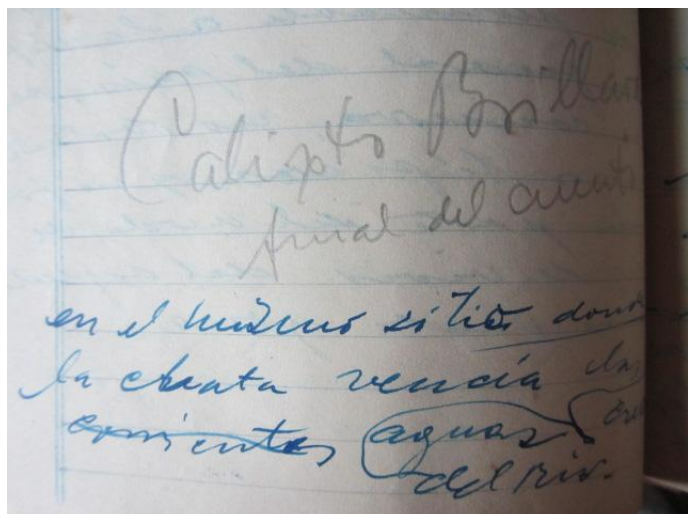 Calixto Brillan
final del cuento
en el mismo sitio donde
la chata vencía las
corrientes aguas
del río.